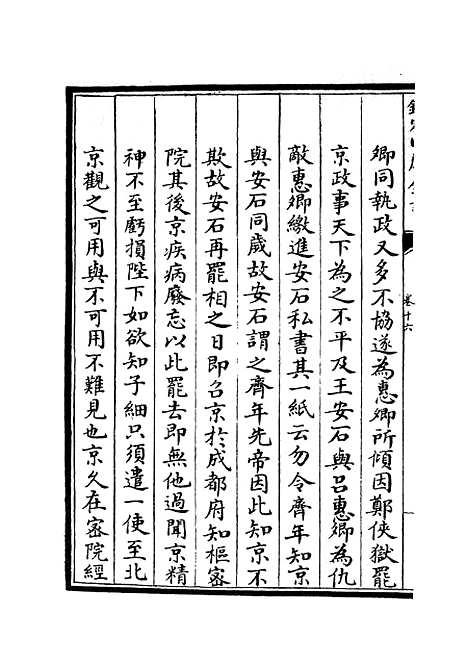 卿同執政又多不協遂為惠卿所傾因鄭俠獄罷
京政事天下為之不平及王安石與呂惠卿為仇
敵惠卿繳進安石私書其一紙云勿令齊年知京
與安石同歲故安石謂之齊年先帝因此知京不
欺故安石再罷相之日即召京於成都府知樞密
院其後京疾病廢忘以此罷去即無他過聞京精
神不至虧損陛下如欲知子細只須遣一使至北
京觀之可用與不可用不難見也京久在密院經
卷十六